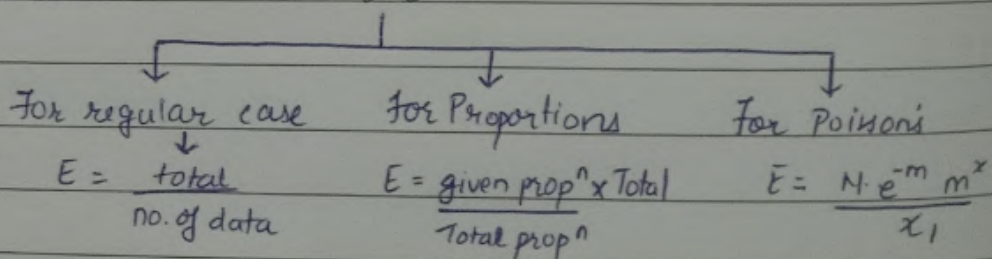 For regular case
E = total / no. of data
For Proportions
E = given propⁿ x Total / Total propⁿ
For Poisons
E = N. e^-m m^x / x!